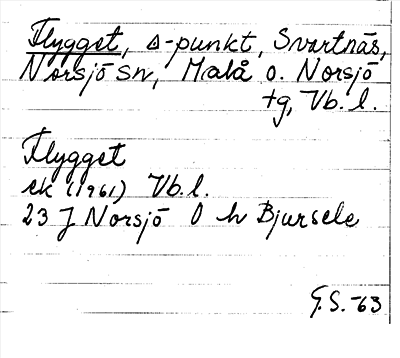 Flygget, Δ-punkt, Svartnäs,
Norsjö sn, Malå o. Norsjö
tg, Vb. l.
Flygget
ek (1961) Vb. l.
23 J Norsjö O h Bjursele
G.S.-63